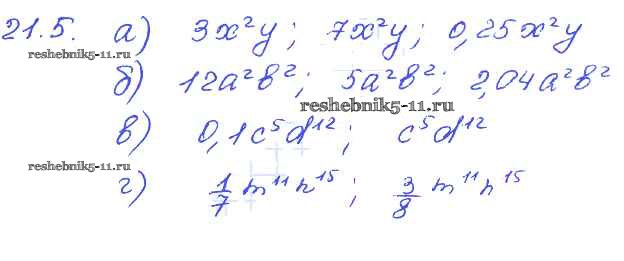 21.5. а) 3x²y; 7x²y; 0,25x²y
reshebnik5-11.ru
б) 12a²b²; 5a²b²; 2,04a²b²
reshebnik5-11.ru
в) 0,1c⁵d¹²; c⁵d¹²
reshebnik5-11.ru
г) 1/7 m¹¹n¹⁵; 3/8 m¹¹n¹⁵